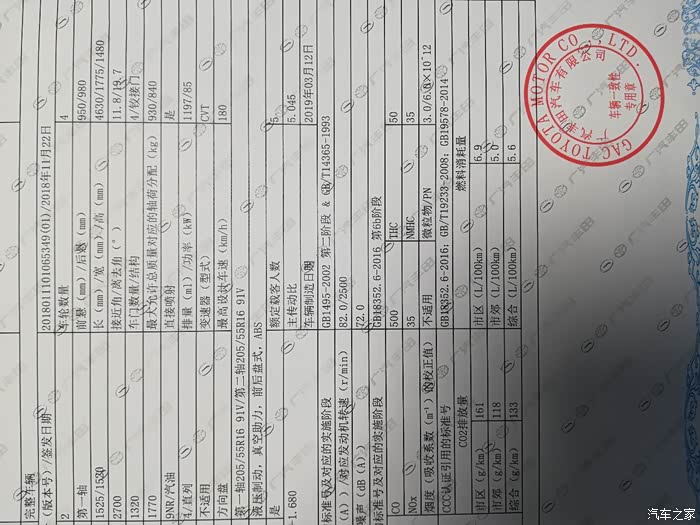 完整车辆
(版本号)/签发日期 2018011101065349(01)/2018年11月22日
2 车轮数量 4
第一轴 前悬(mm)/后悬(mm) 950/980
1525/1520 长(mm)/宽(mm)/高(mm) 4630/1775/1480
2700 接近角/离去角(°) 11.8/19.7
1320 车门数量/结构 4/铰接门
1770 最大允许总质量对应的轴荷分配(kg) 930/840
9NR/汽油 直接喷射 是
4/直列 排量(ml)/功率(kW) 1197/85
不适用 变速器(型式) CVT
方向盘 最高设计车速(km/h) 180
第一轴205/55R16 91V/第二轴205/55R16 91V
液压制动,真空助力,前后盘式,ABS
是 额定载客人数 5
-1.680 主传动比 5.045
车辆制造日期 2019年03月12日
标准号及对应的实施阶段 GB1495-2002 第二阶段 & GB/T14365-1993
(A))/对应发动机转速(r/min) 82.0/2500
噪声(dB(A)) 72.0
标准号及对应的实施阶段 GB18352.6-2016 第6b阶段
CO 500 THC 50
NOx 35 NMHC 35
烟度(吸收系数(m⁻¹)的校正值) 不适用 微粒物/PN
CCC认证引用的标准号 GB18352.6-2016; GB/T19233-2008; GB19578-2014
CO2排放量 燃料消耗量
市区(g/km) 161 市区(L/100km) 6.9
市郊(g/km) 118 市郊(L/100km) 5.0
综合(g/km) 133 综合(L/100km) 5.6
GAC TOYOTA MOTOR CO.,LTD.
广汽丰田汽车有限公司
车辆一致性
专用章
广汽丰田
汽车之家